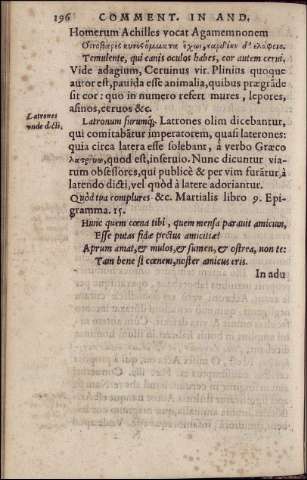 196 COMMENT. IN AND.
Homerum Achilles vocat Agamemnonem
Οἰνοβαρὲς κυνὸς ὄμματα ἔχων, καρδίαν δ' ἐλάφοιο.
Temulente, qui canis oculos habes, cor autem cerui.
Vide adagium, Ceruinus vir. Plinius quoque
autor est, pauida esse animalia, quibus prægrãde
sit cor: quo in numero refert mures, lepores,
asinos, ceruos &c.
Latrones
vnde dicti,
Latronum ſiorumq́;. Latrones olim dicebantur,
qui comitabãtur imperatorem, quasi laterones:
quia circa latera esse solebant, à verbo Græco
λατρεύω, quod est, inseruio. Nunc dicuntur via-
rum obsessores, qui publicè & per vim furãtur, à
latendo dicti, vel quòd à latere adoriantur.
Quòd tua complures &c. Martialis libro 9. Epi-
gramma. 15.
Hunc quem cœna tibi, quem mensa parauit amicum,
Esse putas fidæ pectus amicitiæ?
Aprum amat, & mulos, & sumen, & ostrea, non te:
Tam bene si cœnem, noster amicus eris.
In adu